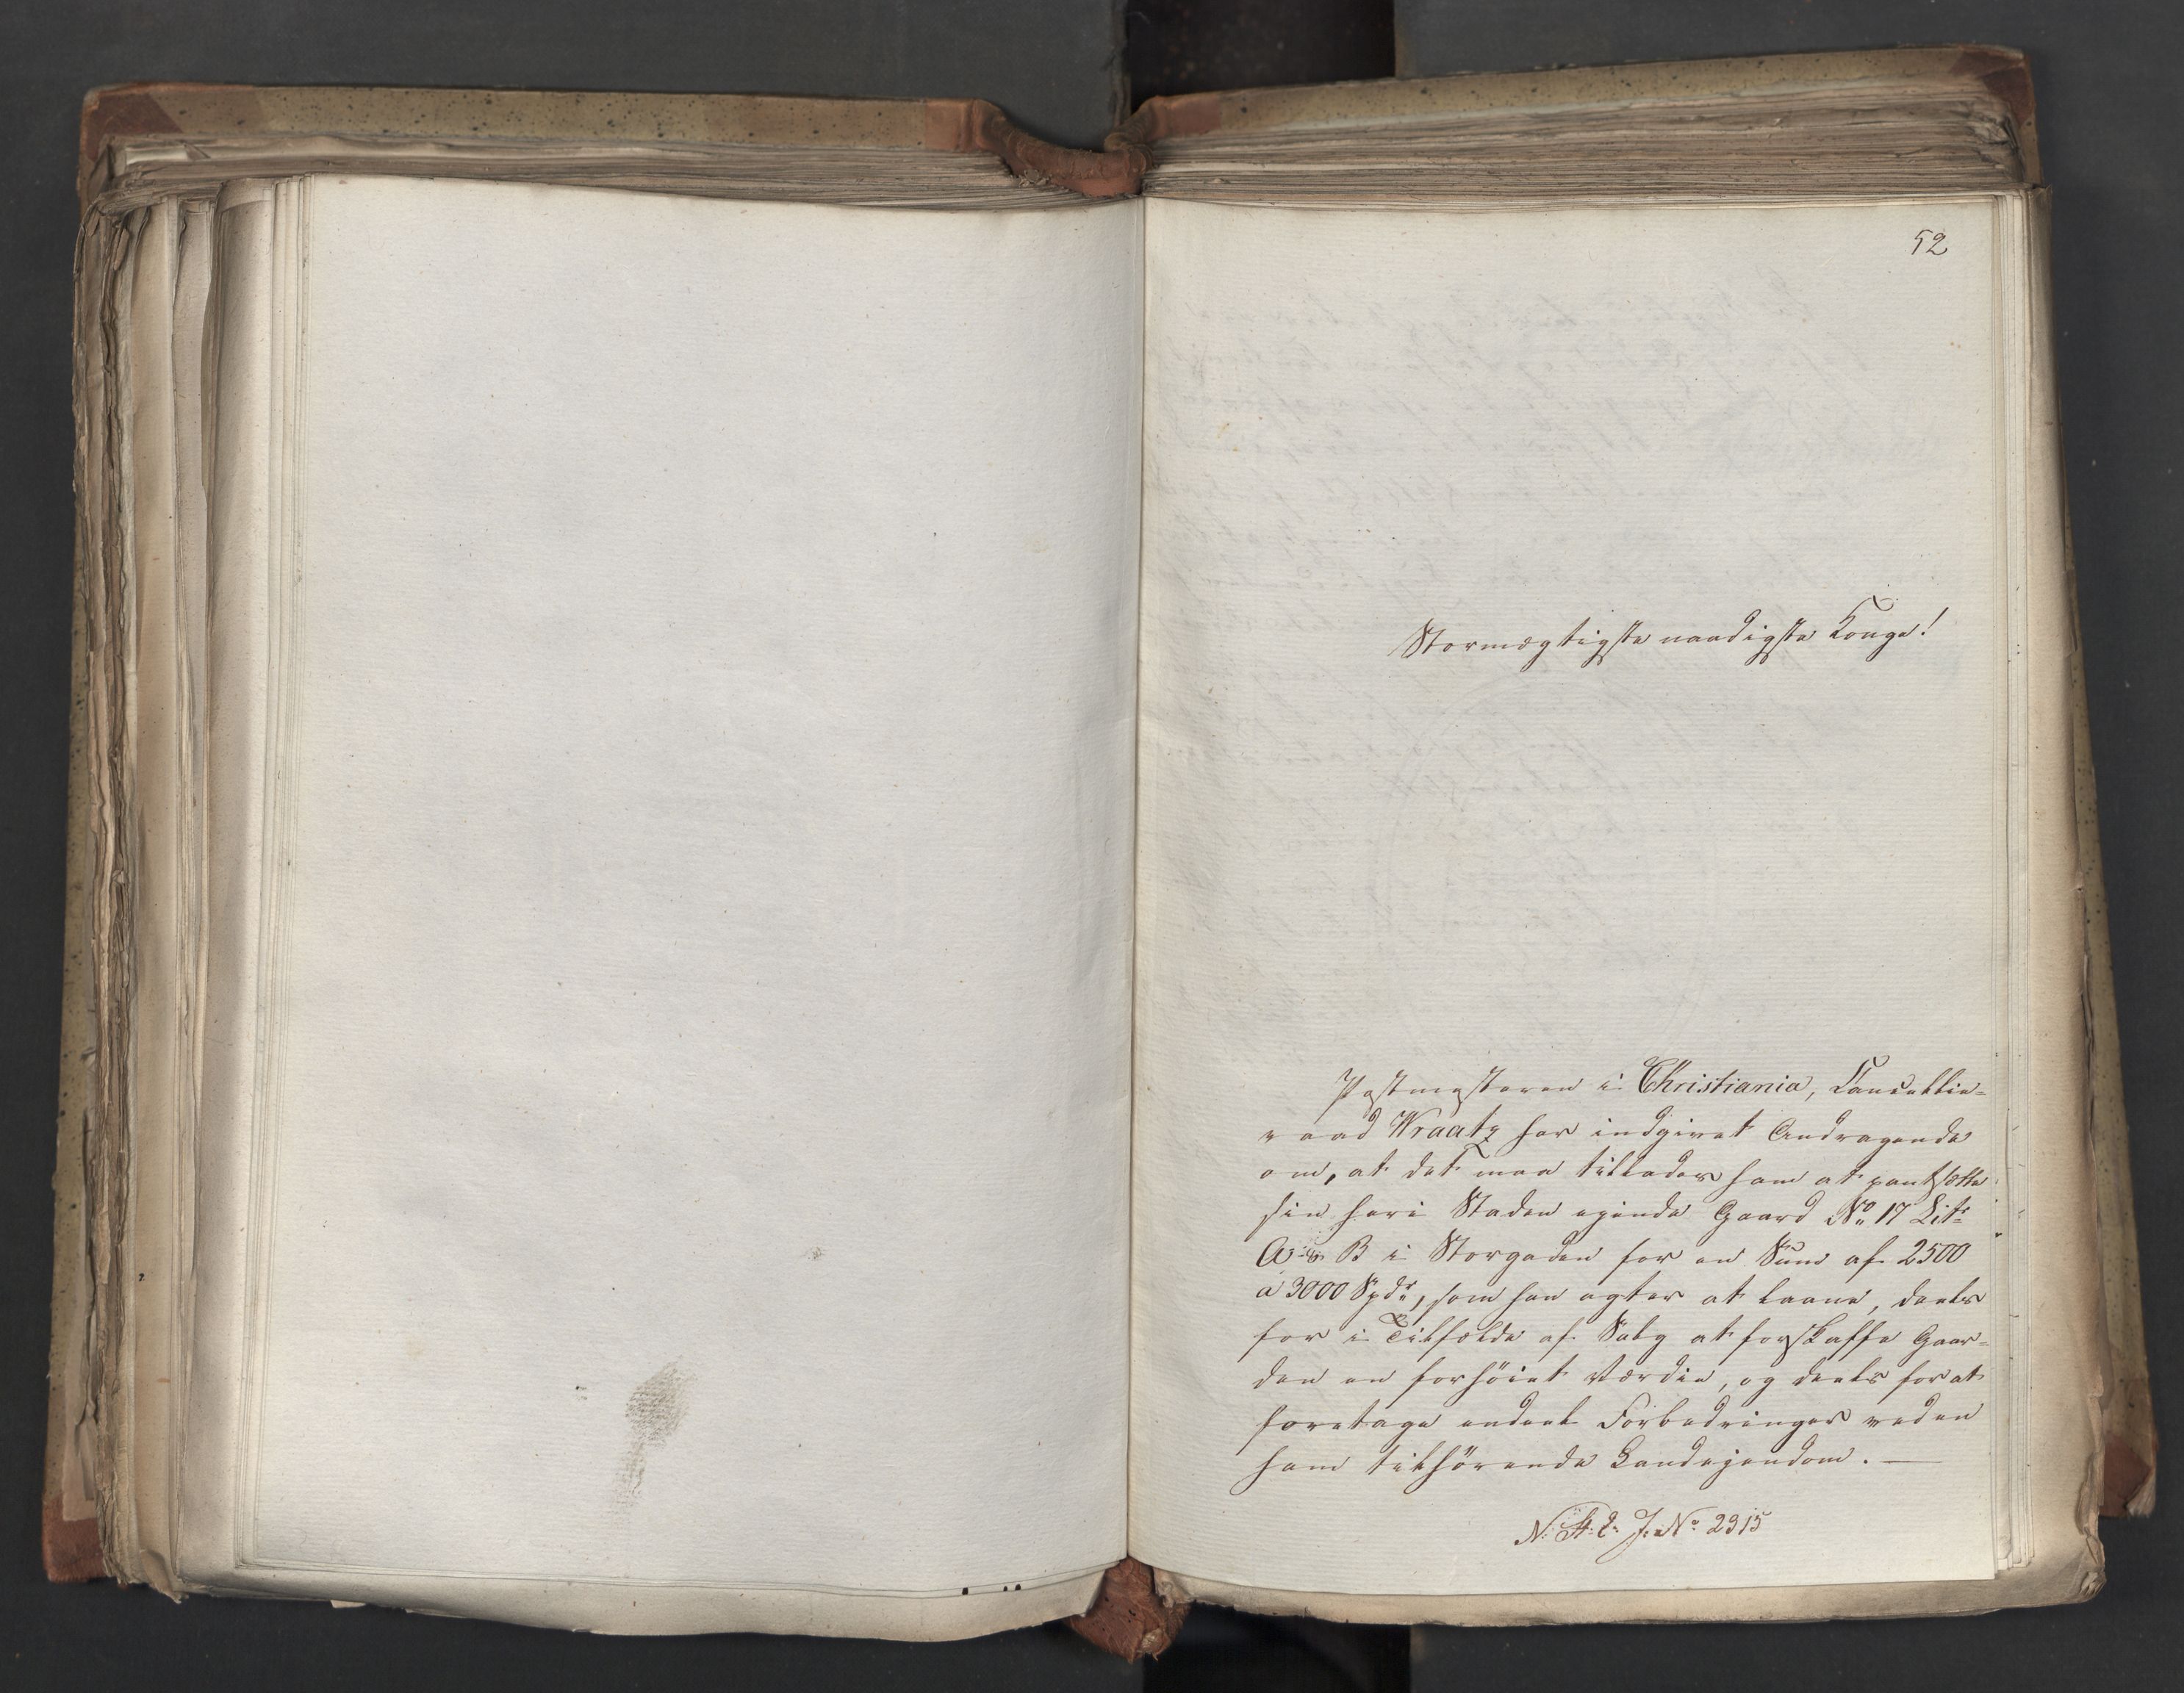 52
Stormægtigste naadigste Konge!
Postmesteren i Christiania, Cancellie-
raad Wraatz har indgivet Andragende
om, at det maa tillades ham at pantsætte
sin her i Staden eiende Gaard No 17 Litr
A & B i Storgaden for en Sum af 2500
a 3000 Spdr, som han agter at laane, deels
for i Tilfælde af Salg at forskaffe Gaar-
den en forhöiet Værdie, og deels for at
foretage endeel Forbedringer ved en
ham tilhörende Landejendom. —
N: St: C: J: No 2315